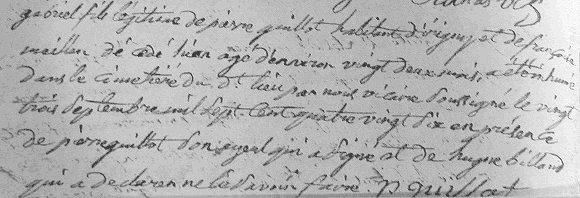 gabriel fils légitime de pierre guillot habitant d'origny et de françoise
meillon décédé hier agé d'environ vingt deux mois, a été inhumé
dans le cimetiere du dt lieu par nous vicaire soussigné le vingt
trois septembre mil sept cent quatre vingt dix en présence
de pierre guillot son ayeul qui a signé et de hugue billard
qui a declaré ne le savoir faire P guillot